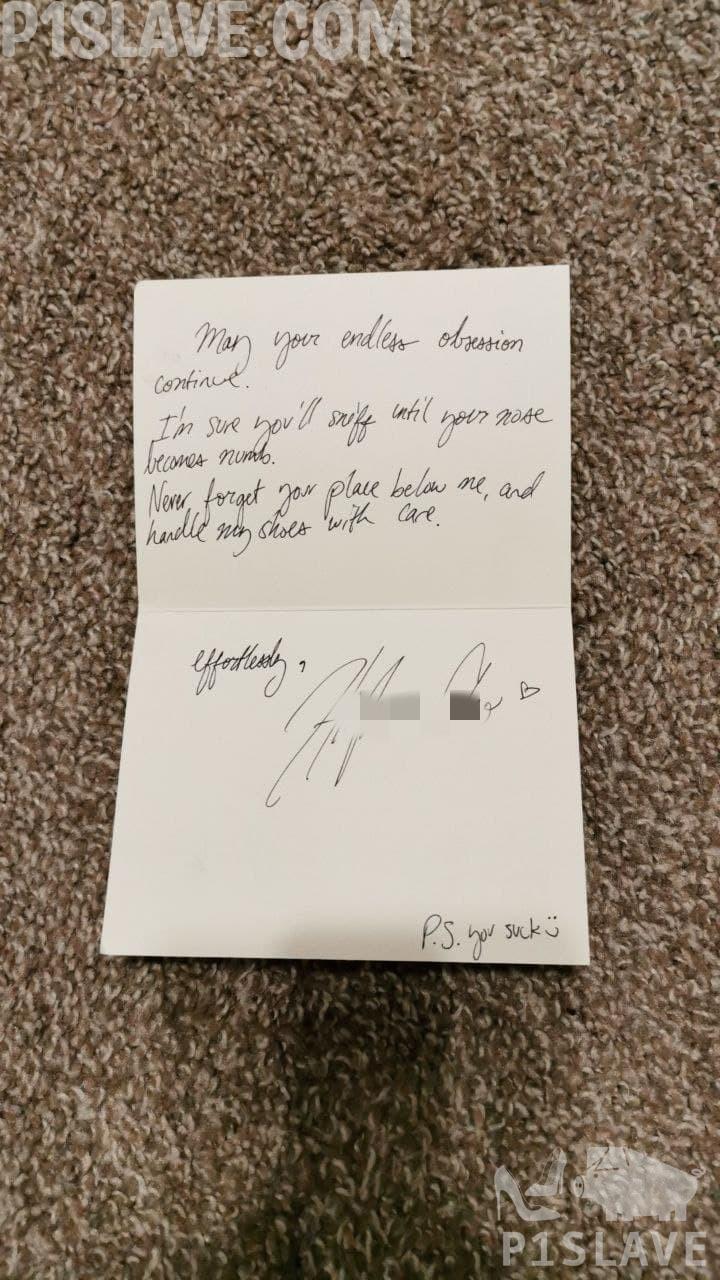 P1SLAVE.COM
May your endless obsession
continue.
I'm sure you'll sniff until your nose
becomes numb.
Never forget your place below me, and
handle my shoes with care.
effortlessly,
P.S. you suck
P1SLAVE